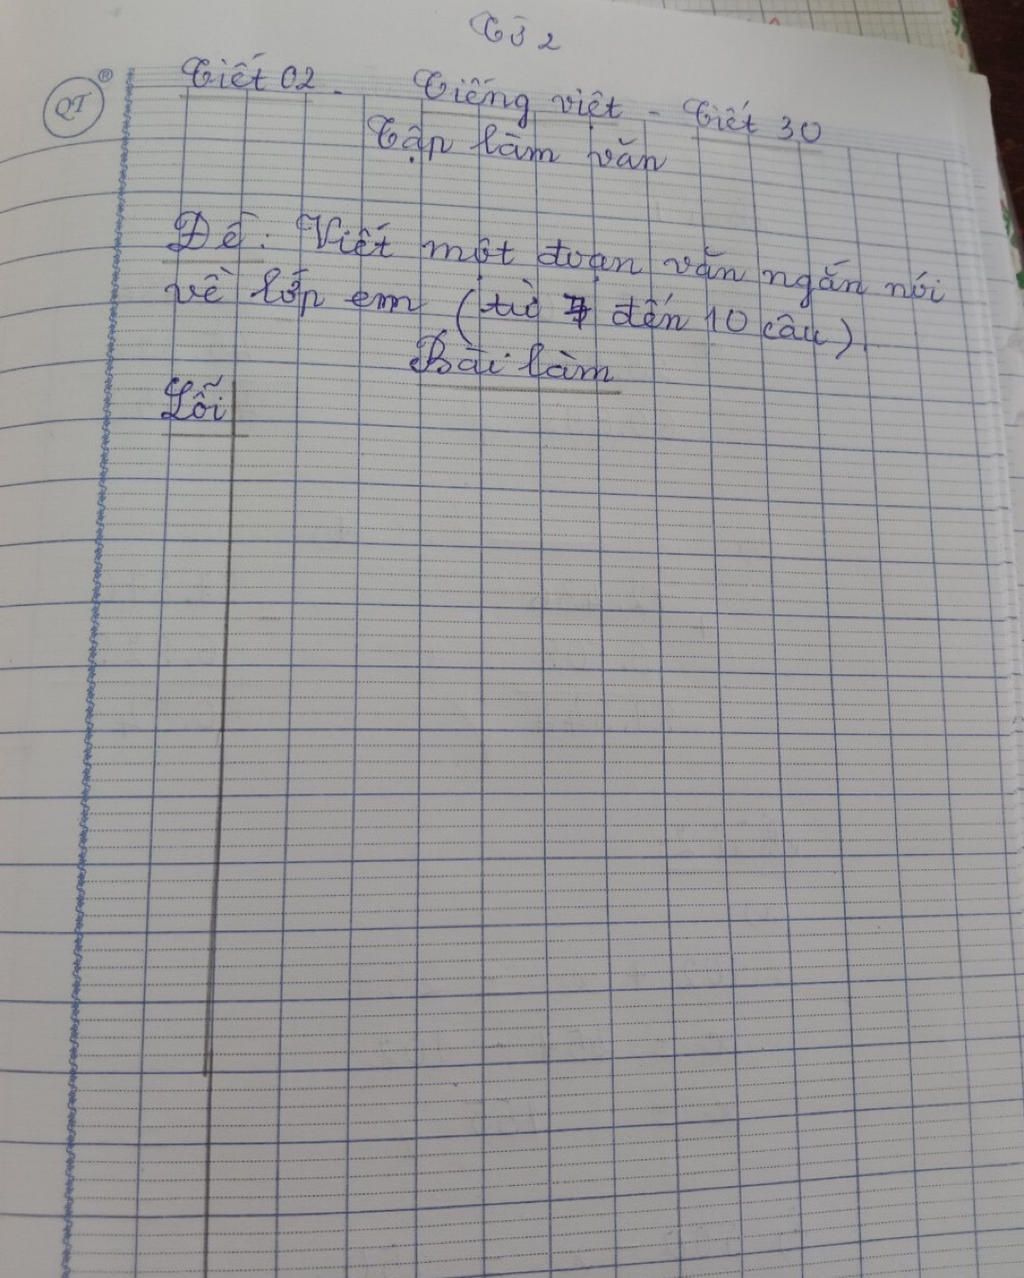 Tổ 2
QT ®
Tiết 02 - Tiếng việt - Tiết 30
Tập làm văn
Đề: Viết một đoạn văn ngắn nói
về lớp em (từ 7 đến 10 câu)
Bài làm
Lỗi